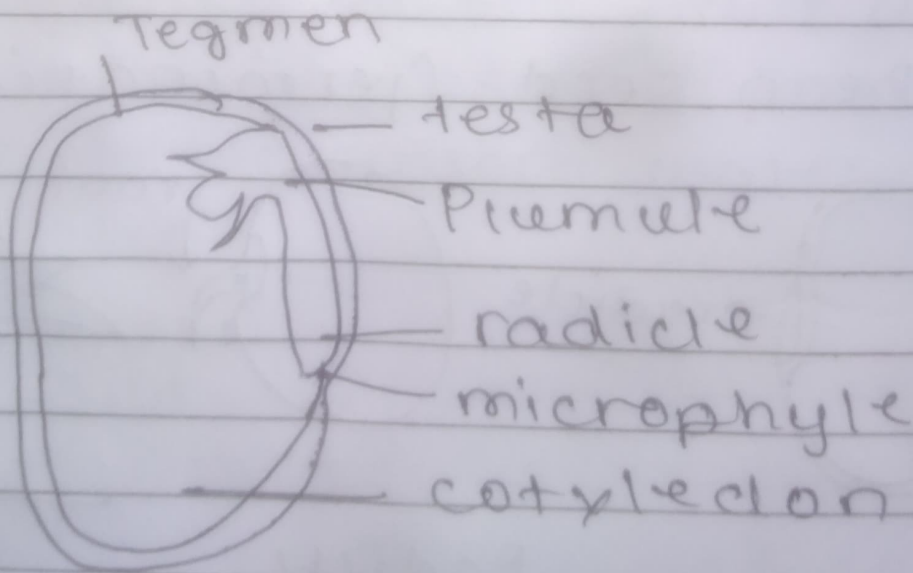 Tegmen
testa
Plumule
radicle
microphyle
cotyledon